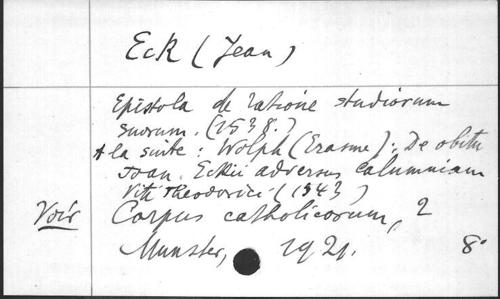 Eck (Jean)
Epistola de ratione studiorum
suorum. (1538.)
A la suite : Wolph (Erasme) : De obitu
Joan. Eckii adversus calumniam
Viti Theodorici (1543)
Voir Corpus catholicorum, 2
Munster, 1921. 8°